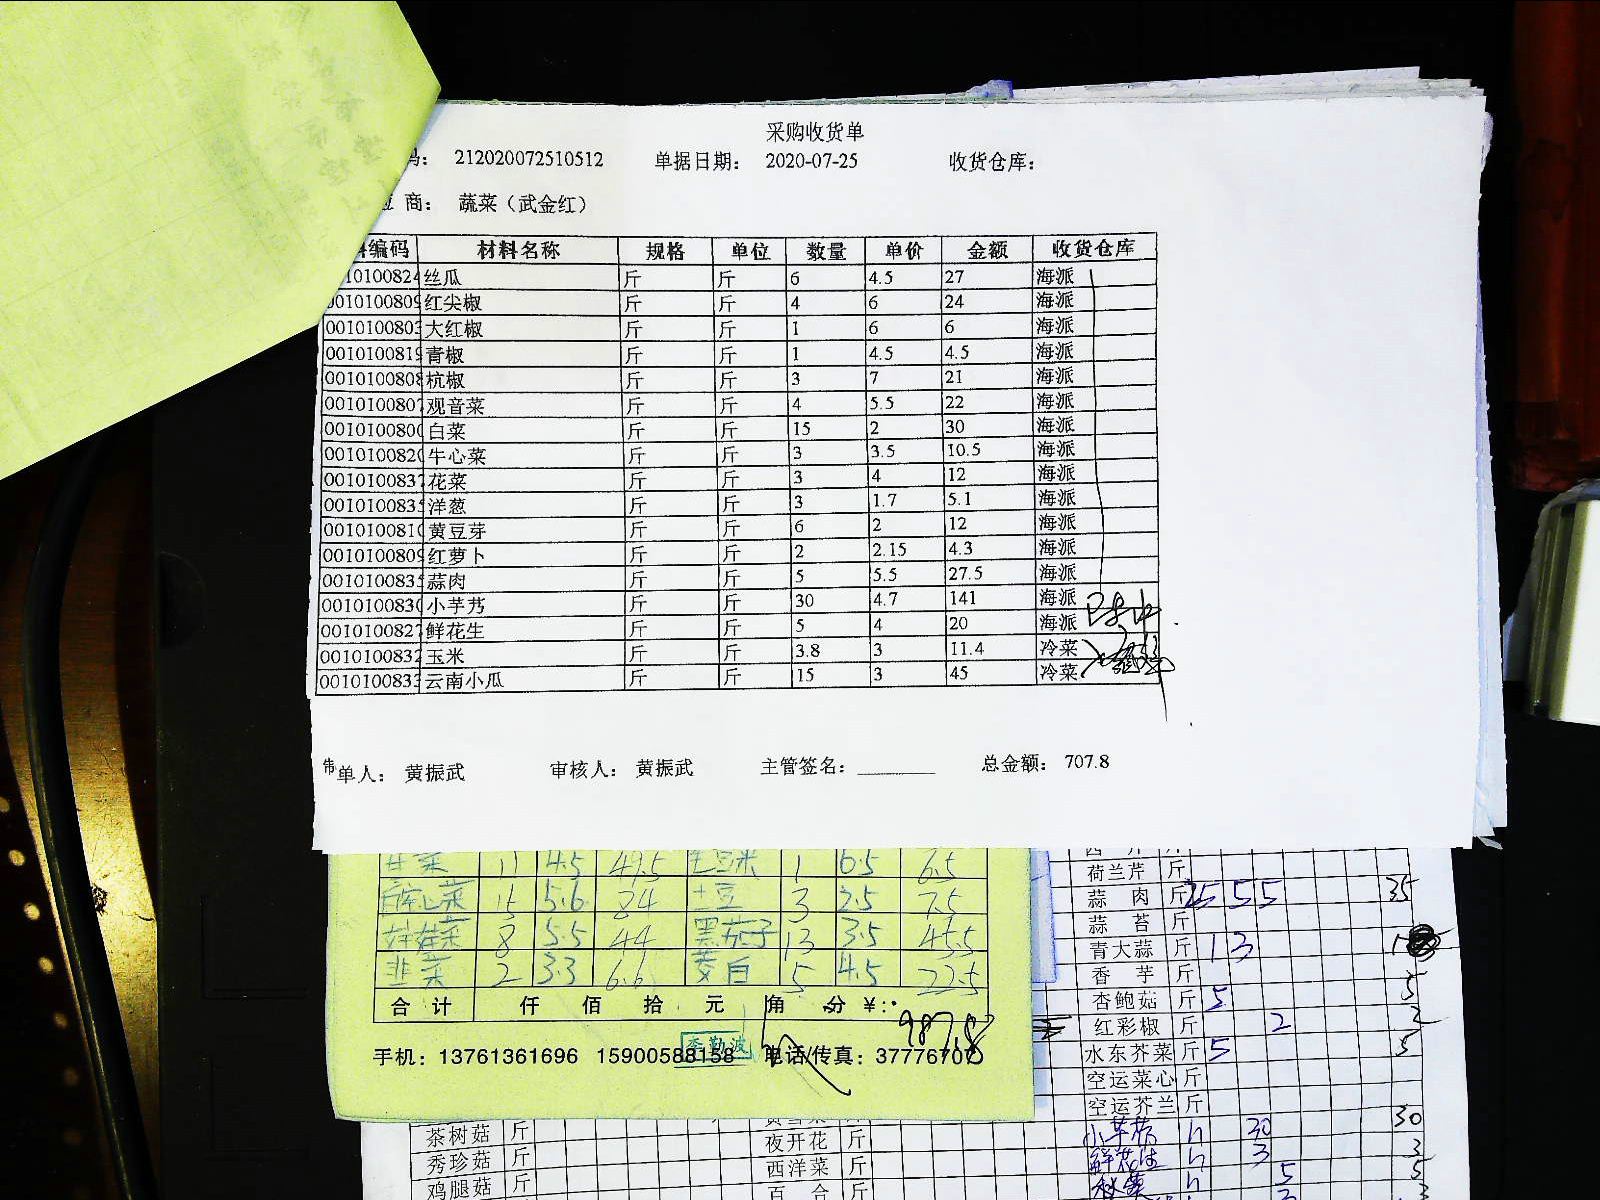 采购收货单
码： 212020072510512 单据日期： 2020-07-25 收货仓库：
应 商： 蔬菜（武金红）
编码 材料名称 规格 单位 数量 单价 金额 收货仓库
010100824 丝瓜 斤 斤 6 4.5 27 海派
0010100809 红尖椒 斤 斤 4 6 24 海派
0010100803 大红椒 斤 斤 1 6 6 海派
0010100819 青椒 斤 斤 1 4.5 4.5 海派
0010100808 杭椒 斤 斤 3 7 21 海派
0010100807 观音菜 斤 斤 4 5.5 22 海派
0010100800 白菜 斤 斤 15 2 30 海派
0010100820 牛心菜 斤 斤 3 3.5 10.5 海派
0010100837 花菜 斤 斤 3 4 12 海派
0010100835 洋葱 斤 斤 3 1.7 5.1 海派
0010100810 黄豆芽 斤 斤 6 2 12 海派
0010100809 红萝卜 斤 斤 2 2.15 4.3 海派
0010100835 蒜肉 斤 斤 5 5.5 27.5 海派
0010100830 小芋艿 斤 斤 30 4.7 141 海派
0010100827 鲜花生 斤 斤 5 4 20 海派
0010100832 玉米 斤 斤 3.8 3 11.4 冷菜
0010100833 云南小瓜 斤 斤 15 3 45 冷菜
单人： 黄振武 审核人： 黄振武 主管签名： 总金额： 707.8
11 4.5 49.5 1 6.5 6.5
15 5.6 84 土豆 3 2.5 7.5
娃娃菜 8 5.5 44 黑茄子 13 3.5 45.5
韭菜 2 3.3 6.6 茭白 5 4.5 22.5
合 计 仟 佰 拾 元 角 分 ¥： 987.8
李勤波
手机：13761361696 15900588158 电话/传真：37776707
荷兰芹 斤
蒜 肉 斤 25 5 5 35
蒜 苔 斤
青大蒜 斤 1 3
香 芋 斤
杏鲍菇 斤 5 5
红彩椒 斤 2 2
水东芥菜 斤 5 5
空运菜心 斤
空运芥兰 斤
小芋艿 斤 30 30
鲜花生 斤 3 3
5 5
茶树菇 斤 夜开花 斤
秀珍菇 斤 西洋菜 斤
鸡腿菇 斤 百 合 斤